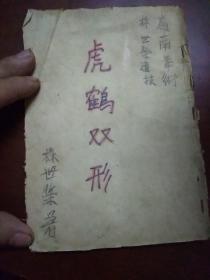 嶺南拳術
林世榮遺技
虎鶴双形
林世榮著